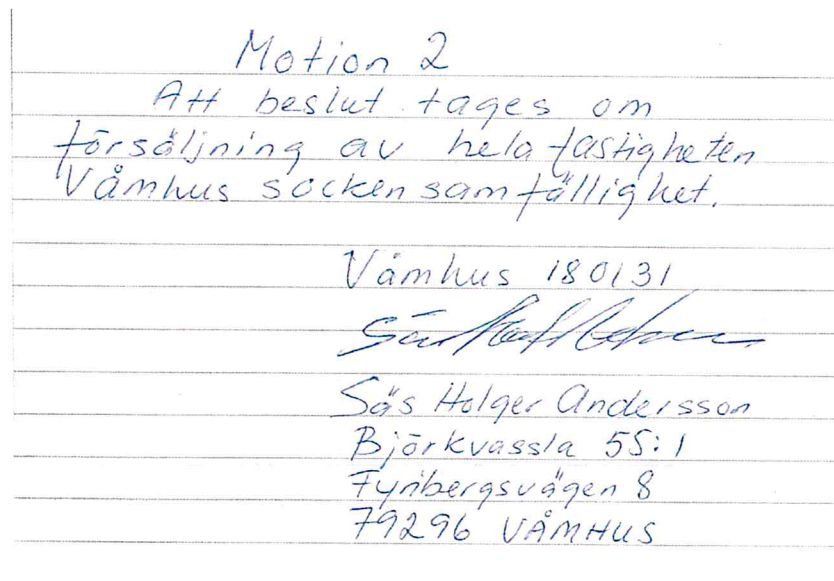 Motion 2
Att beslut tages om
försäljning av hela fastigheten
Våmhus sockensamfällighet.
Våmhus 180131
Säs Holger Andersson
Björkvassla 55:1
Fyribergsvägen 8
79296 VÅMHUS